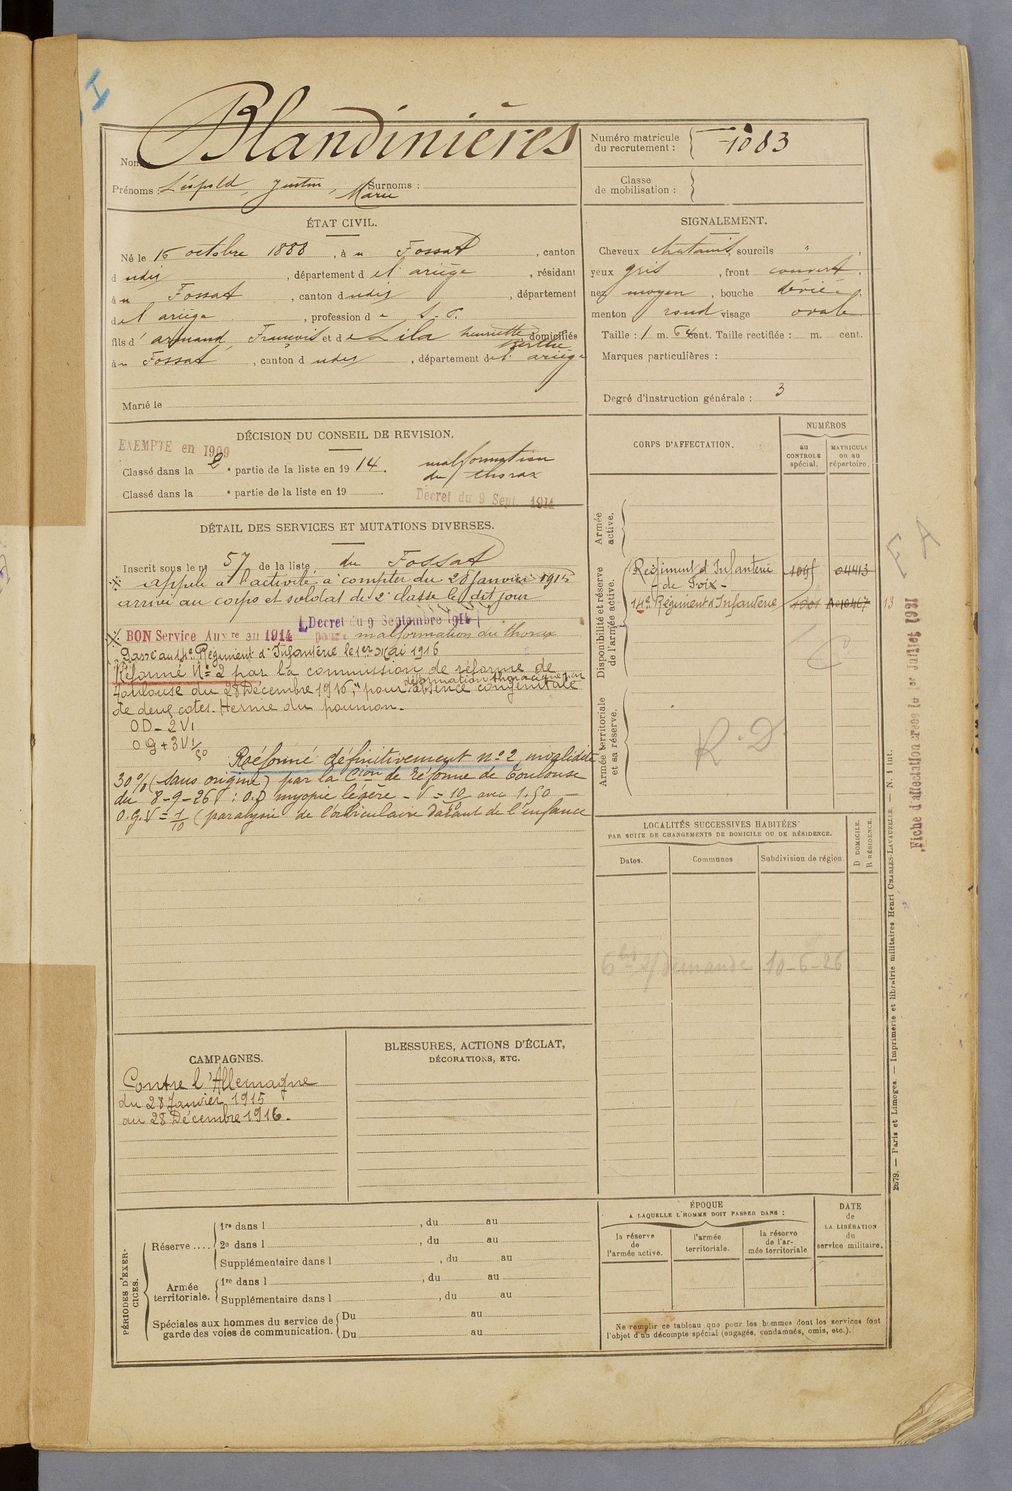 I
Nom : Blandinières
Prénoms : Léopold, Justin, Marie Surnoms :
Numéro matricule du recrutement : 1083
Classe de mobilisation :
ÉTAT CIVIL.
Né le 16 octobre 1888, à u Fossat, canton
d udit, département d e l'ariège, résidant
à u Fossat, canton d udit, département
d e l'ariège, profession d e S. P.
fils d' armand, François et d e Lila henriette berthe domiciliés
à u Fossat, canton d udit, département d e l'ariège
Marié le
SIGNALEMENT.
Cheveux chatains, sourcils "
yeux gris, front couvert,
nez moyen, bouche déviée,
menton rond visage ovale
Taille : 1 m. 64 cent. Taille rectifiée : m. cent.
Marques particulières :
Degré d'instruction générale : 3
DÉCISION DU CONSEIL DE REVISION.
EXEMPTE en 1909
Classé dans la 2e partie de la liste en 1914. malformation
du thorax
Classé dans la e partie de la liste en 19 .
Décret du 9 Sept 1914
DÉTAIL DES SERVICES ET MUTATIONS DIVERSES.
Inscrit sous le n° 57 de la liste du Fossat
appelé à l'activité à compter du 28 Janvier 1915
arrivé au corps et soldat de 2e classe le dit jour
(Décret du 9 Septembre 1914)
BON Service Auxre en 1914 pour malformation du thorax
Passé au 14e Régiment d'Infanterie le 1er Mai 1916
Réformé N° 2 par la commission de réforme de
Toulouse du 28 Décembre 1916, "pour déformation thoracique par absence congénitale
de deux cotes. Hernie du poumon.
OD - 2 V1
O g + 3 V1/50
Réformé définitivement n° 2 invalidité
30% (sans origine) par la Cion de réforme de Toulouse
du 8-9-26 : O.D myopie légère - V = 10/10 avec 1.50 -
O.g. V = 1/10 (paralysie de l'orbiculaire datant de l'enfance
CORPS D'AFFECTATION.
NUMÉROS
au CONTROLE spécial.
MATRICULE ou au répertoire.
Armée active.
Disponibilité et réserve de l'armée active.
Régiment d'Infanterie
de Foix - 1095 04413
14e Régiment d'Infanterie 1001 A010467 13
Armée territoriale et sa réserve.
R.D.
Fiche d'affectation créée le 1er Juillet 1921
LOCALITÉS SUCCESSIVES HABITÉES
PAR SUITE DE CHANGEMENTS DE DOMICILE OU DE RÉSIDENCE.
Dates. Communes Subdivision de région
D DOMICILE.
R RÉSIDENCE.
demande 10-6-26
CAMPAGNES.
Contre l'Allemagne
du 28 Janvier 1915
au 28 Décembre 1916.
BLESSURES, ACTIONS D'ÉCLAT,
DÉCORATIONS, ETC.
PÉRIODES D'EXERCICES.
Réserve .... 1re dans l , du au
2e dans l , du au
Supplémentaire dans l , du au
Armée territoriale. 1re dans l , du au
Supplémentaire dans l , du au
Spéciales aux hommes du service de garde des voies de communication. Du au
Du au
ÉPOQUE
A LAQUELLE L'HOMME DOIT PASSER DANS :
la réserve de l'armée active.
l'armée territoriale.
la réserve de l'armée territoriale
DATE de LA LIBÉRATION du service militaire.
Ne remplir ce tableau que pour les hommes dont les services font
l'objet d'un décompte spécial (engagés, condamnés, omis, etc.).
2679. — Paris et Limoges. — Imprimerie et librairie militaires Henri CHARLES-LAVAUZELLE. — N. 1 int.